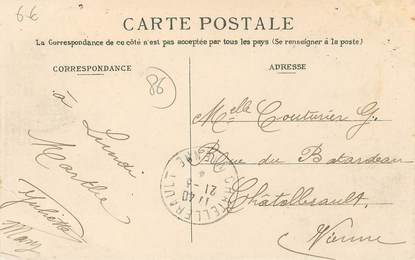 66
CARTE POSTALE
La Correspondance de ce côté n'est pas acceptée par tous les pays (Se renseigner à la poste)
CORRESPONDANCE
ADRESSE
86
à Lundi
Marthe
Juliette
Mary
Melle Couturier G.
Rue du Batardeau
Châtellerault
Vienne
CHATELLERAULT
VIENNE
11 40
21 - 5